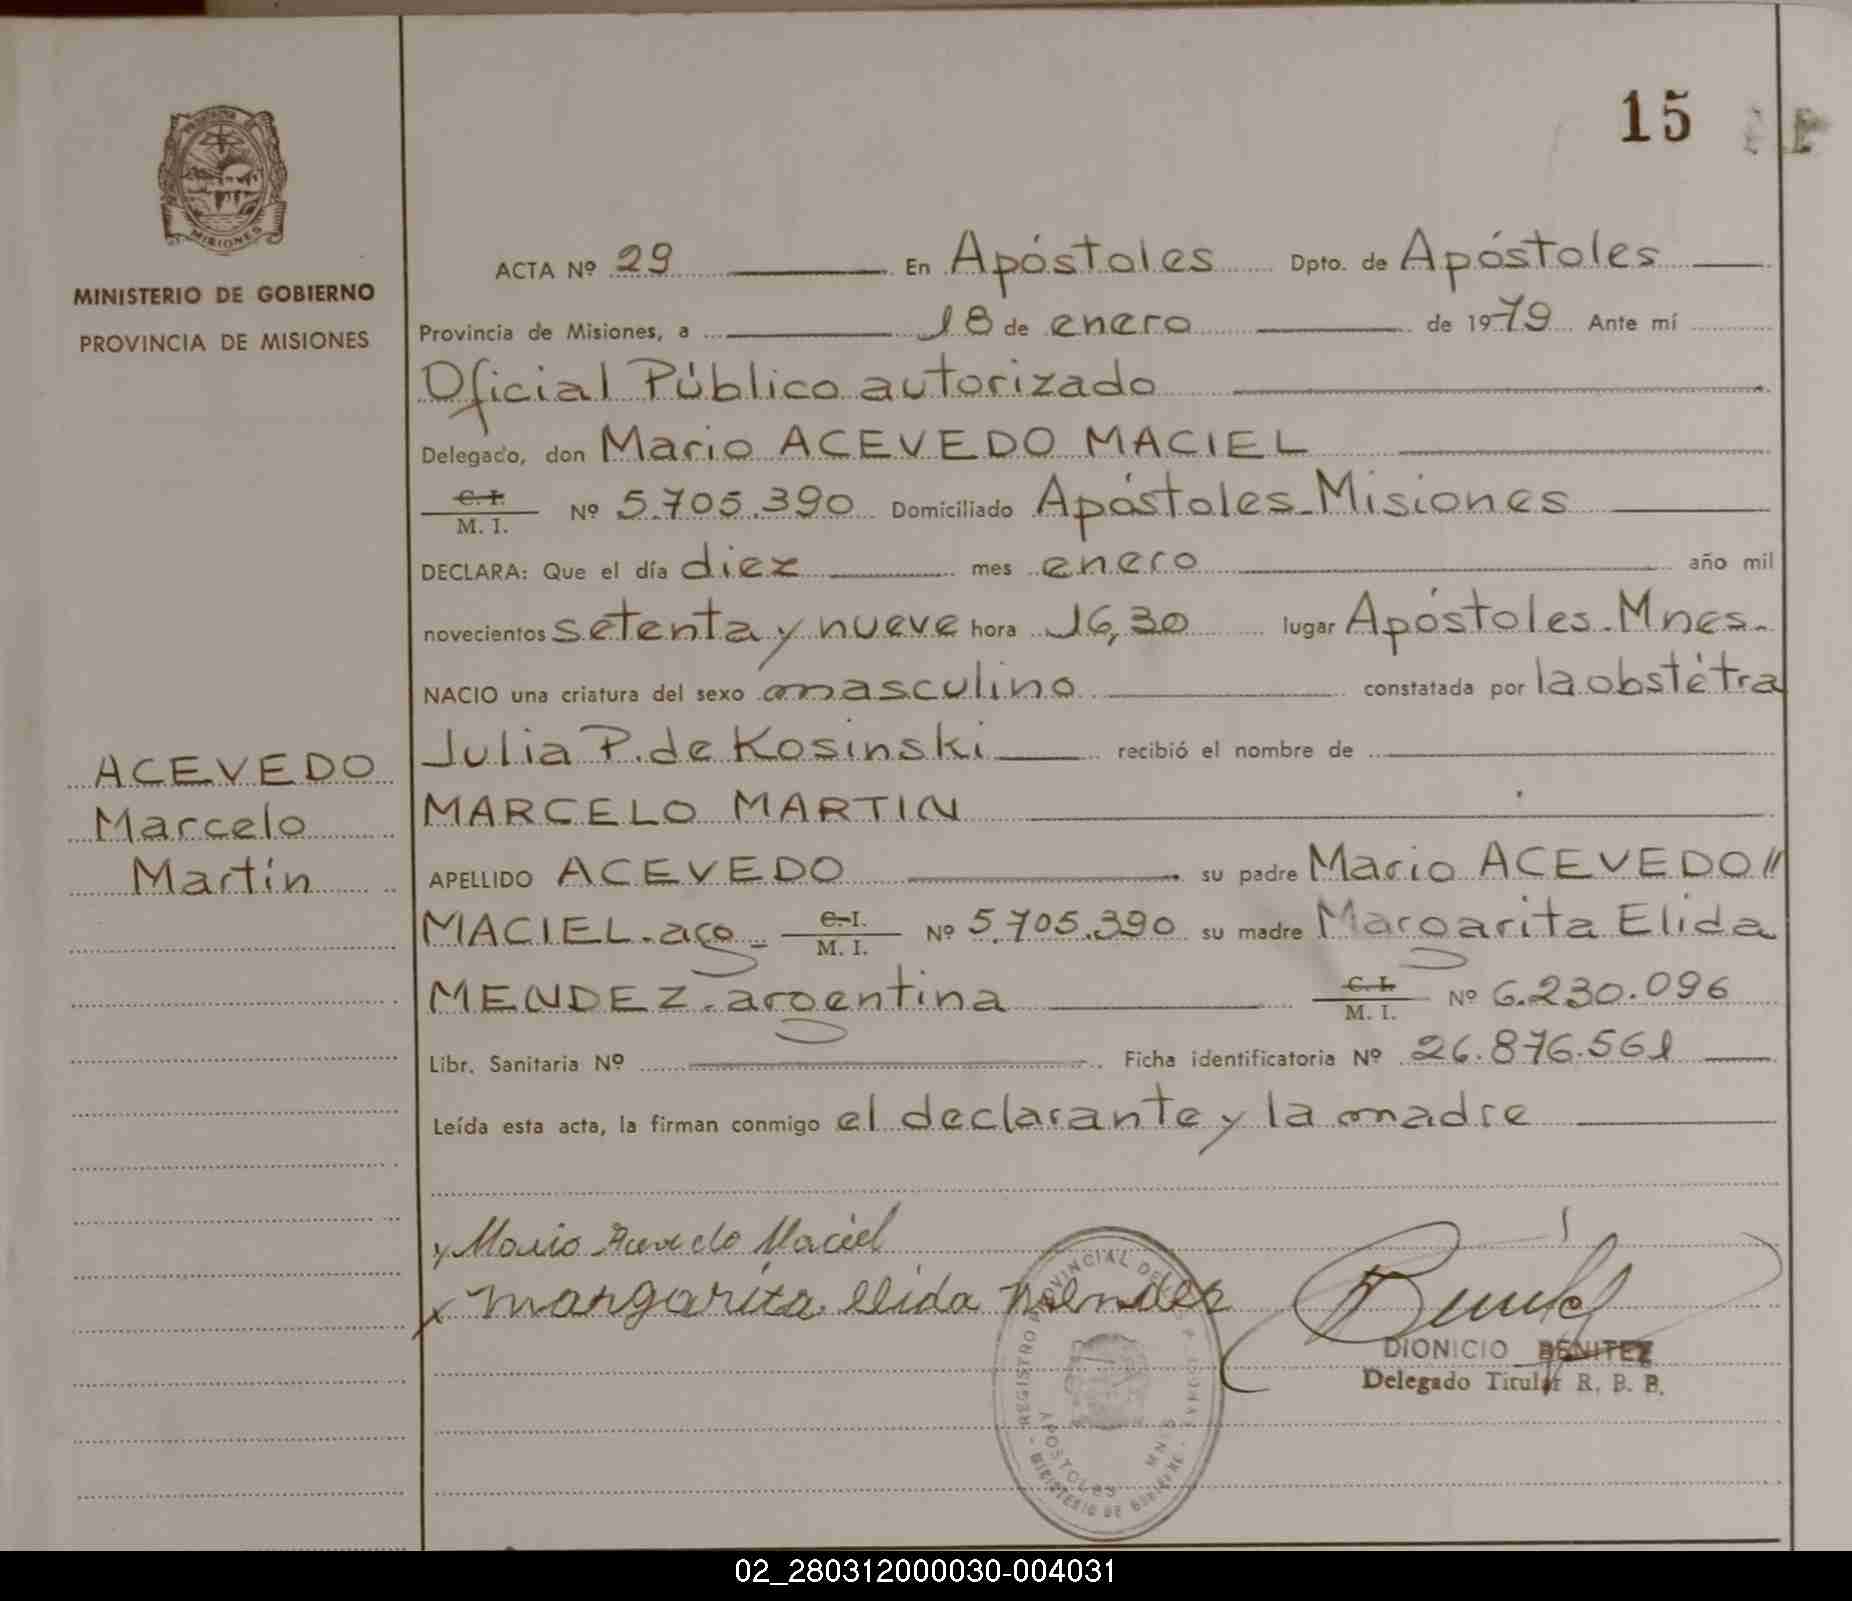 15
MINISTERIO DE GOBIERNO
PROVINCIA DE MISIONES
ACEVEDO
Marcelo
Martín
ACTA Nº 29 En Apóstoles Dpto. de Apóstoles
Provincia de Misiones, a 18 de enero de 1979 Ante mí
Oficial Público autorizado
Delegado, don Mario ACEVEDO MACIEL
C. I. / M. I. Nº 5.705.390 Domiciliado Apóstoles-Misiones
DECLARA: Que el día diez mes enero año mil
novecientos setenta y nueve hora 16,30 lugar Apóstoles-Mnes.
NACIO una criatura del sexo masculino constatada por la obstétra
Julia P. de Kosinski recibió el nombre de
MARCELO MARTIN
APELLIDO ACEVEDO su padre Mario ACEVEDO//
MACIEL-arg- C. I. / M. I. Nº 5.705.390 su madre Margarita Elida
MENDEZ-argentina C. I. / M. I. Nº 6.230.096
Libr. Sanitaria Nº Ficha identificatoria Nº 26.876.561
Leída esta acta, la firman conmigo el declarante y la madre
Mario Acevedo Maciel
x margarita elida mendez
DIONICIO BENITEZ
Delegado Titular R. P. P.
REGISTRO PROVINCIAL DE LAS PERSONAS
APOSTOLES MNES
MINISTERIO DE GOBIERNO
02_280312000030-004031